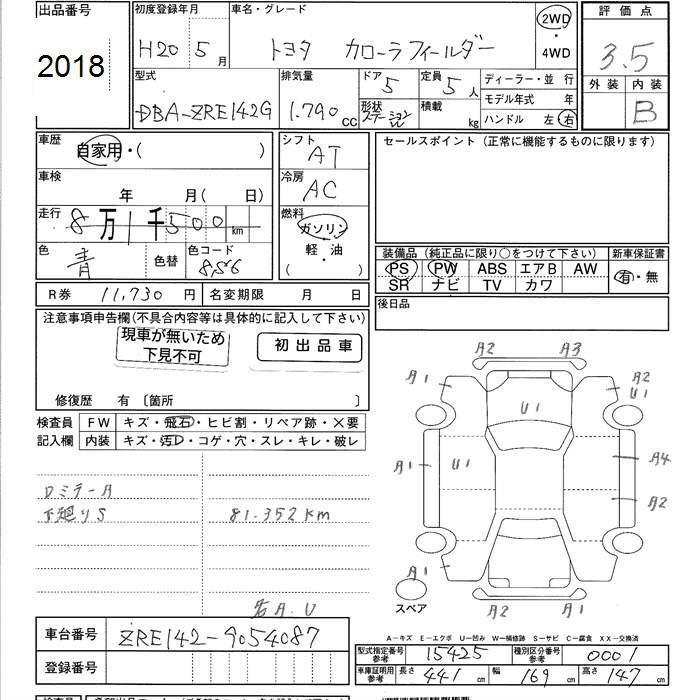 出品番号 初度登録年月 車名・グレード 2WD ・ 4WD 評価点
2018 H20 5月 トヨタ カローラフィールダー 3.5
型式 排気量 ドア 定員 ディーラー・並 行 外装 内装
DBA-ZRE142G 1.790cc 5 5人 モデル年式 年 B
形状 ステーション 積載 kg ハンドル 左 右
車歴 自家用・( ) シフト AT セールスポイント (正常に機能するものに限ります)
車検 年 月( 日) 冷房 AC
走行 8万1千500km 燃料 ガソリン 軽・油 ( ・ )
色 青 色替 色コード 856
装備品 (純正品に限り○をつけて下さい) 新車保証書
PS PW ABS エアB AW 有・無
SR ナビ TV カワ
R券 11,730円 名変期限 月 日 後日品
注意事項申告欄(不具合内容等は具体的に記入して下さい)
現車が無いため 下見不可 初出品車
修復歴 有〔箇所 〕
検査員 記入欄 FW キズ・飛石・ヒビ割・リペア跡・×要
内装 キズ・汚D・コゲ・穴・スレ・キレ・破レ
ロミラーA
下廻りS 81.352km
A2 A3
A1 A2 U1
U1
A1 U1 A4
A2
A1 A1
A2 A1
スペア
A.U
車台番号 ZRE142-9054087
登録番号
A-キズ E-エクボ U-凹み W-補修跡 S-サビ C-腐食 XX-交換済
型式指定番号 参考 15425 種別区分番号 参考 0001
車庫証明用 参考 長さ 441cm 幅 169cm 高さ 147cm